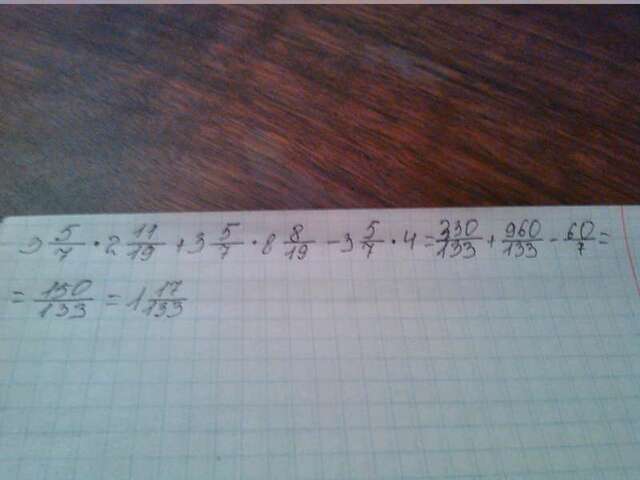 3 5/7 · 2 11/19 + 3 5/7 · 8 8/19 - 3 5/7 · 4 = 330/133 + 960/133 - 60/7 =
= 150/133 = 1 17/133